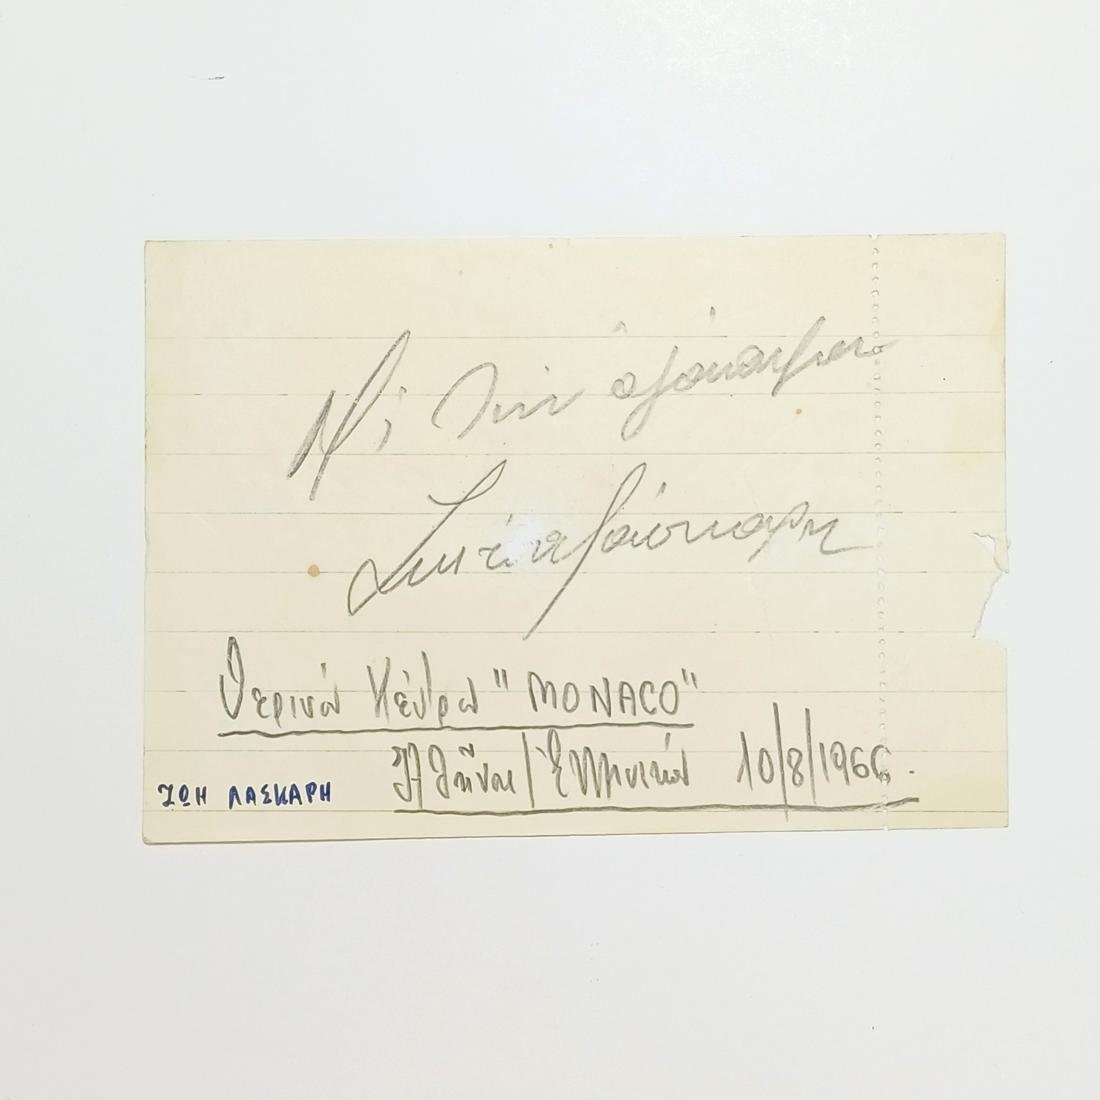 Μέ τήν ἀγάπη μου
Ζωή Λάσκαρη
Θερινόν Κέντρον "MONACO"
Ἀθῆναι/Ἑλληνικόν 10/8/1966.
ΖΩΗ ΛΑΣΚΑΡΗ